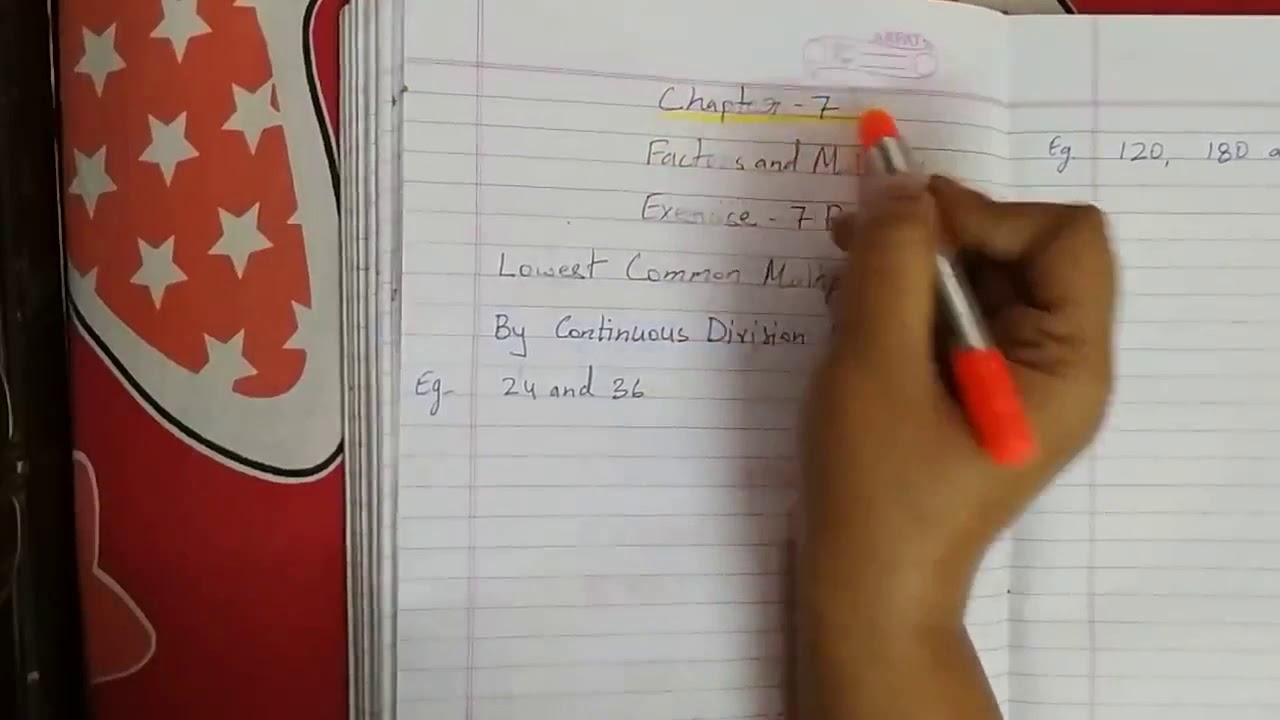 Chapter - 7
and
Exercise - 7
Lowest Common
By Continuous Division
Eg- 24 and 36
Eg 120, 180